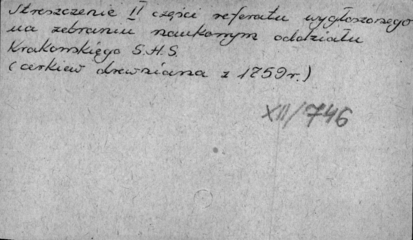 Streszczenie II części referatu wygłoszonego
na zebraniu naukowym oddziału
Krakowskiego S.H.S.
(cerkiew drewniana z 1759r.)
XII/746